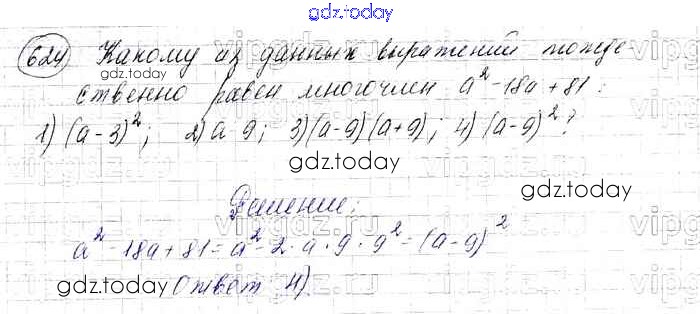 gdz.today
624 Какому из данных выражений тожде
gdz.today
ственно равен многочлен a² - 18a + 81:
1) (a - 3)²; 2) a 9; 3) (a - 9)(a + 9); 4) (a - 9)²?
gdz.today
gdz.today
Решение:
a² - 18a + 81 = a² - 2 · a · 9 · 9² = (a - 9)²
gdz.today Ответ 4).
gdz.today